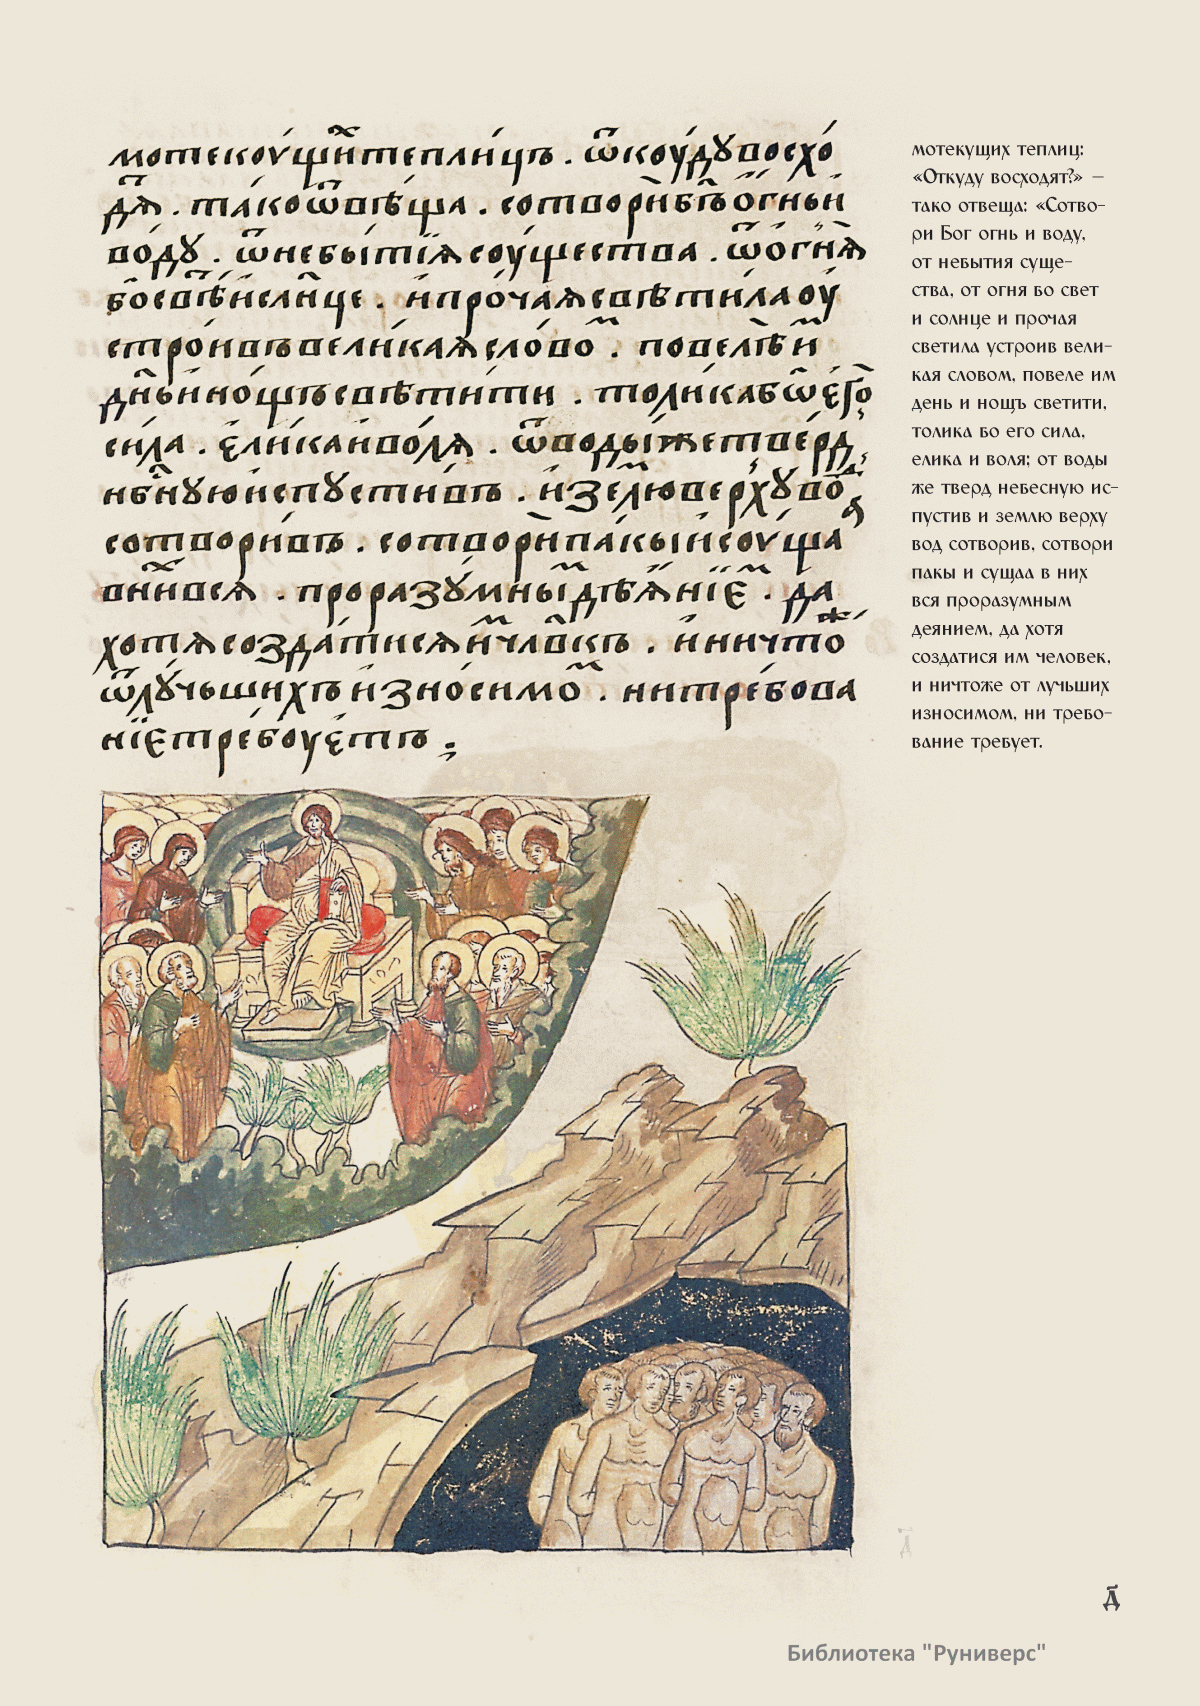 мотекꙋщи̑хтеплицъ. ѿкоꙋдꙋвосхо
дѧ̑т. такоѿвѣща. сотворибг҃ъогньи
водꙋ. ѿнебытїѧсоущества. ѿогнѧ
босвѣ̑тислн҃це. ипрочаѧсвѣтилаоу
строивъвеликаѧсловѡ̑м. повелѣи̑м
дн҃ьинощъсвѣтити. толикабоегѡ
сила. еликаиволѧ. ѿводыжетверд
нбⷭ҇нꙋюиспꙋстивъ. иземлюверхꙋвод
сотворивъ. сотворипакыисоуща̑ѧ
вни̑хвсѧ. проразꙋмны̑мдѣѧнїе̑м. да
хотѧсоздатисѧи̑мчл҃вкъ. иничтоже
ѿлꙋчьшихъизносимо̑м. нитребова
нїетребоуетъ.
мотекущих теплиц:
«Откуду восходят?» —
тако отвеща: «Сотво-
ри Бог огнь и воду,
от небытия суще-
ства, от огня бо свет
и солнце и прочая
светила устроив вели-
кая словом, повеле им
день и нощъ светити,
толика бо его сила,
елика и воля; от воды
же тверд небесную ис-
пустив и землю верху
вод сотворив, сотвори
пакы и сущаа в них
вся проразумным
деянием, да хотя
создатися им человек,
и ничтоже от лучьших
износимом, ни требо-
вание требует.
д҃
д҃
Библиотека "Руниверс"